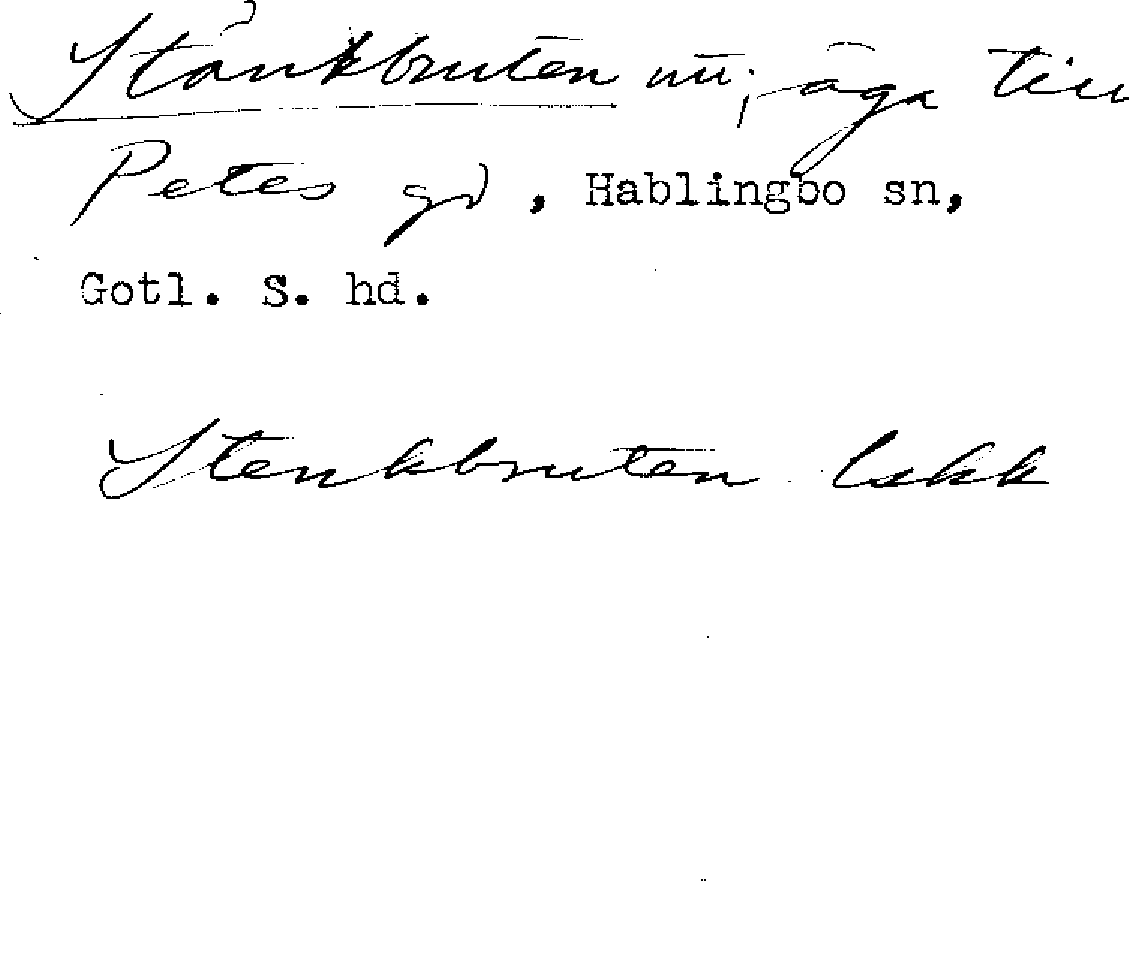 Stänkbruten nu; äga till
Petes gd, Hablingbo sn,
Gotl. S. hd.
Stenkbruten lskk